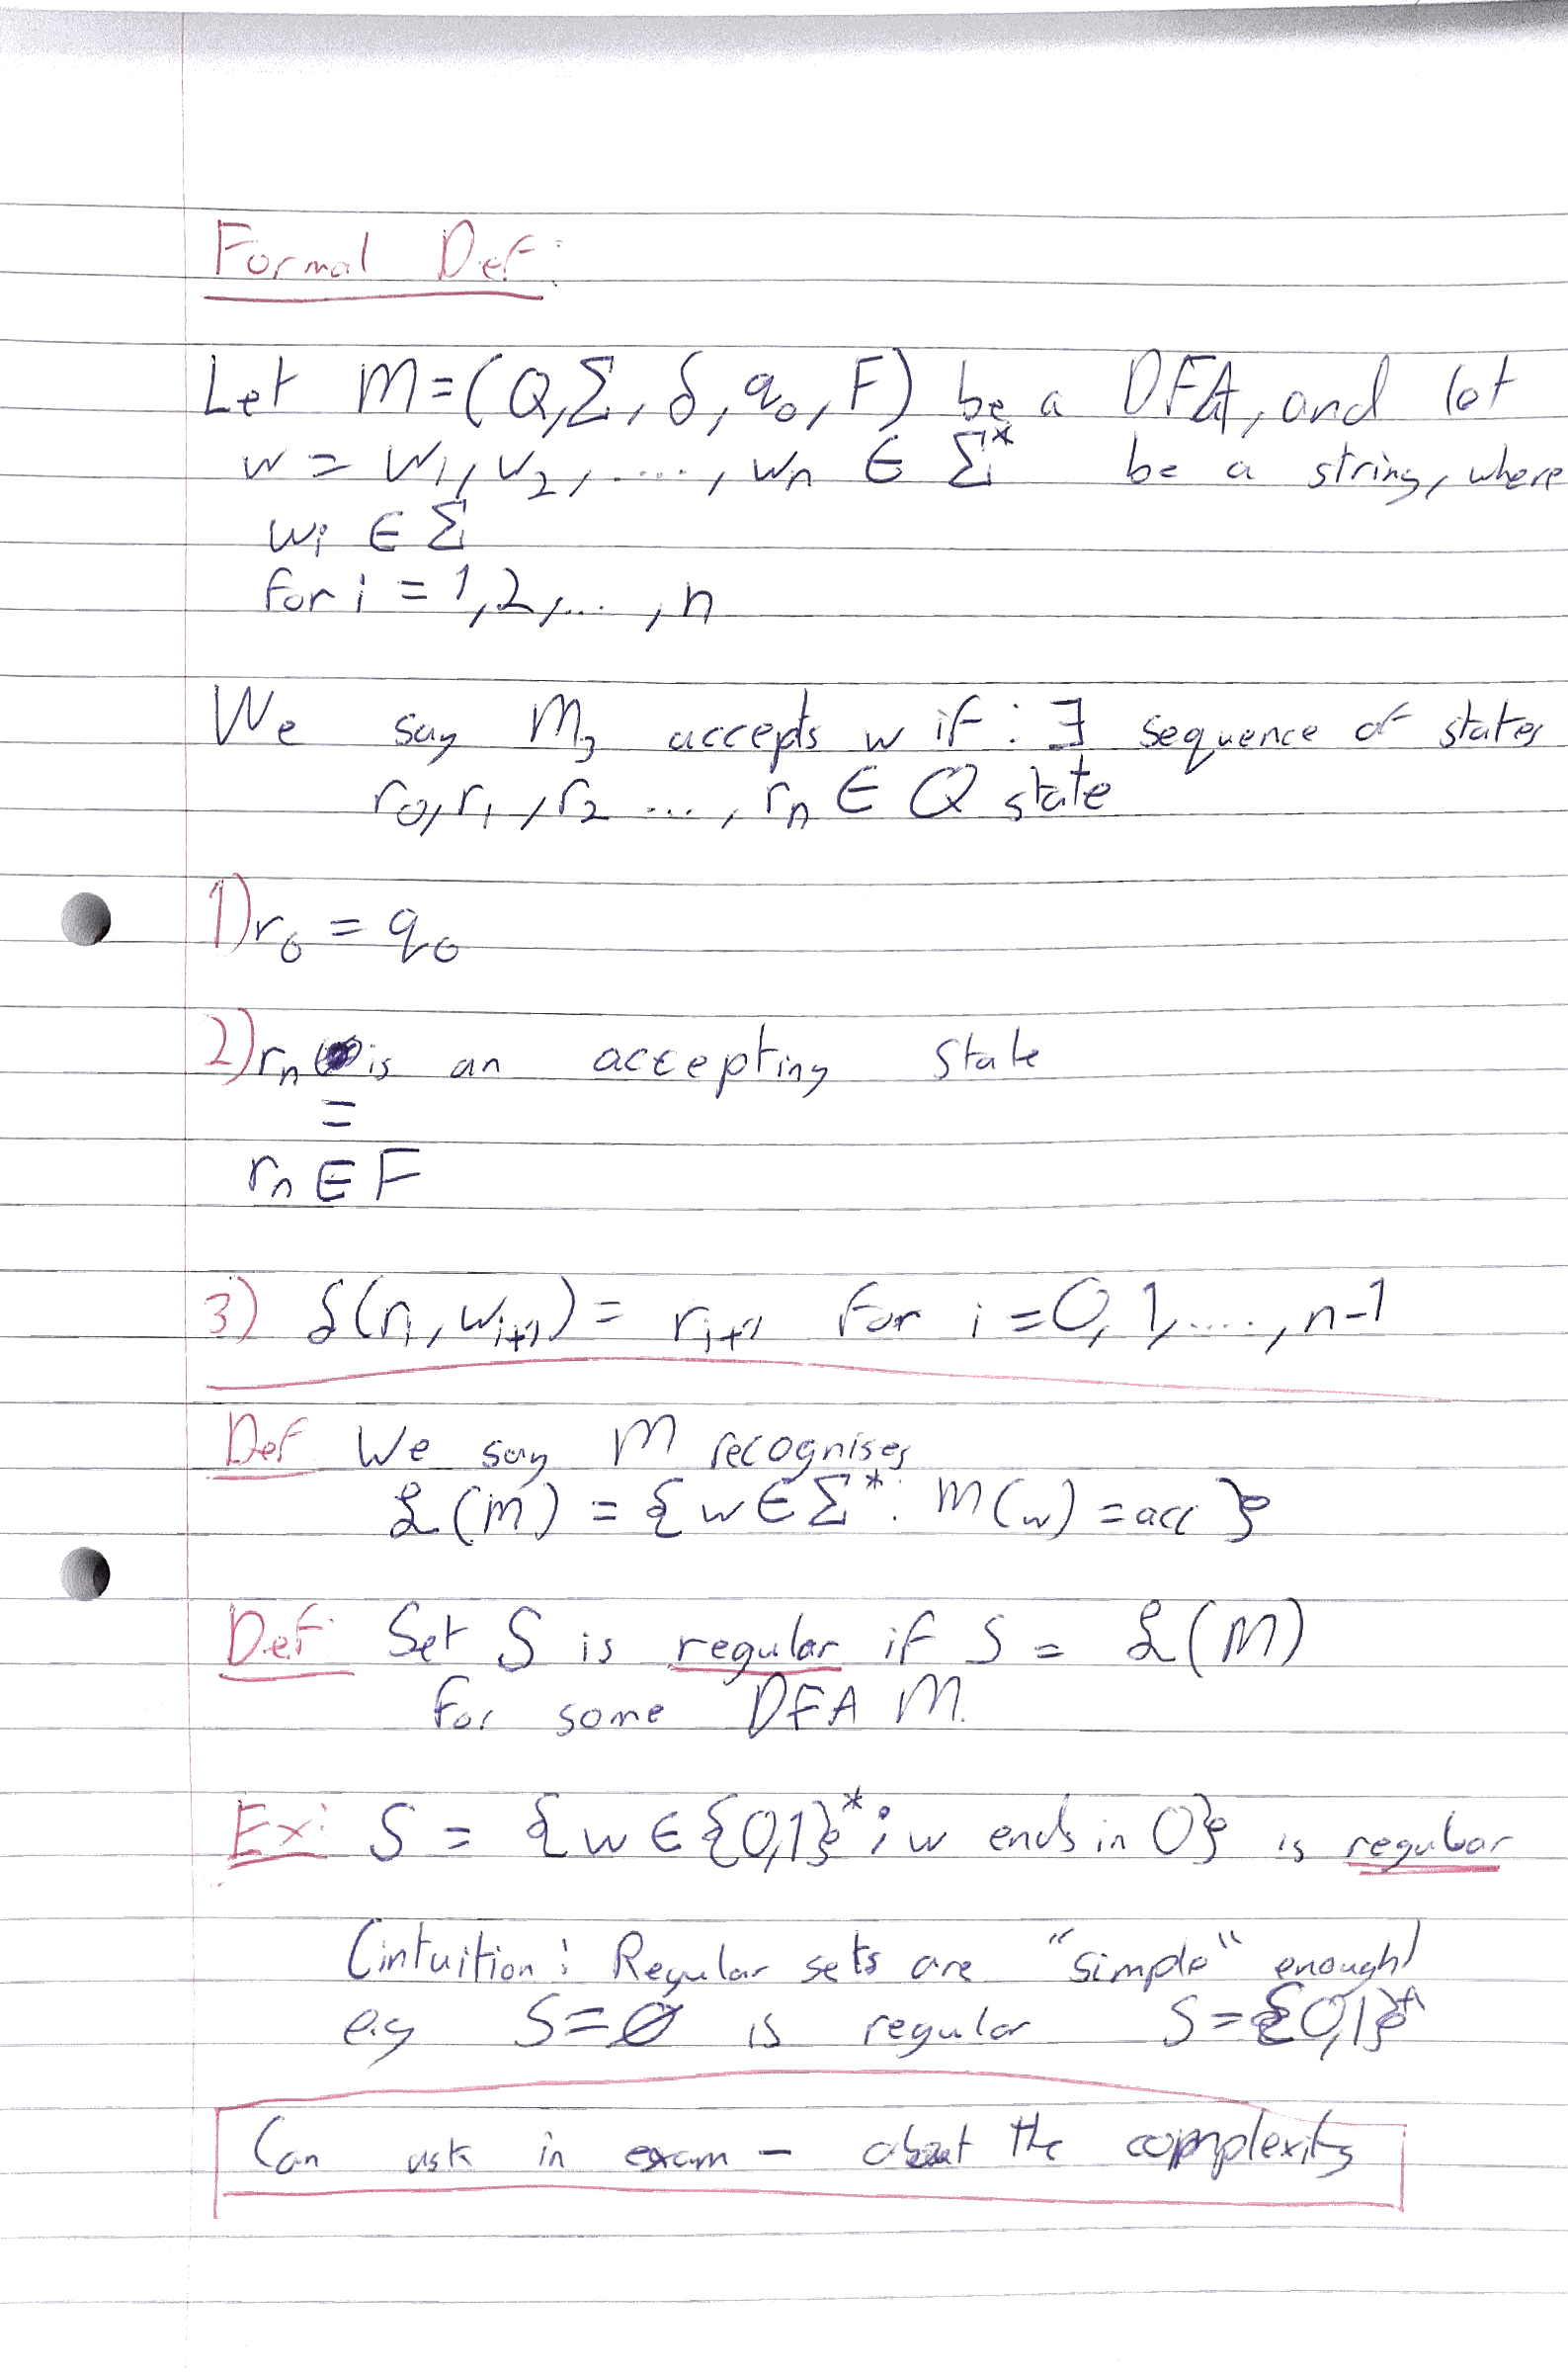 Formal Def:
Let M=(Q,Σ,δ,q₀,F) be a DFA, and let
w = w₁,w₂,....,wₙ ∈ Σ* be a string, where
wᵢ ∈ Σ
for i = 1,2,...,n
We say M₃ accepts w if: ∃ sequence of states
r₀,r₁,r₂ ..., rₙ ∈ Q state
1) r₀ = q₀
2) rₙ is an accepting state
=
rₙ ∈ F
3) δ(rᵢ, wᵢ₊₁) = rᵢ₊₁ for i=0,1,....,n-1
Def We say M recognises
ℒ(M) = {w∈Σ*: M(w) = acc}
Def: Set S is regular if S = ℒ(M)
for some DFA M.
Ex: S = {w∈{0,1}*; w ends in 0} is regular
(intuition: Regular sets are "simple" enough)
e.g S=∅ is regular S={0,1}*
Can ask in exam - about the complexity